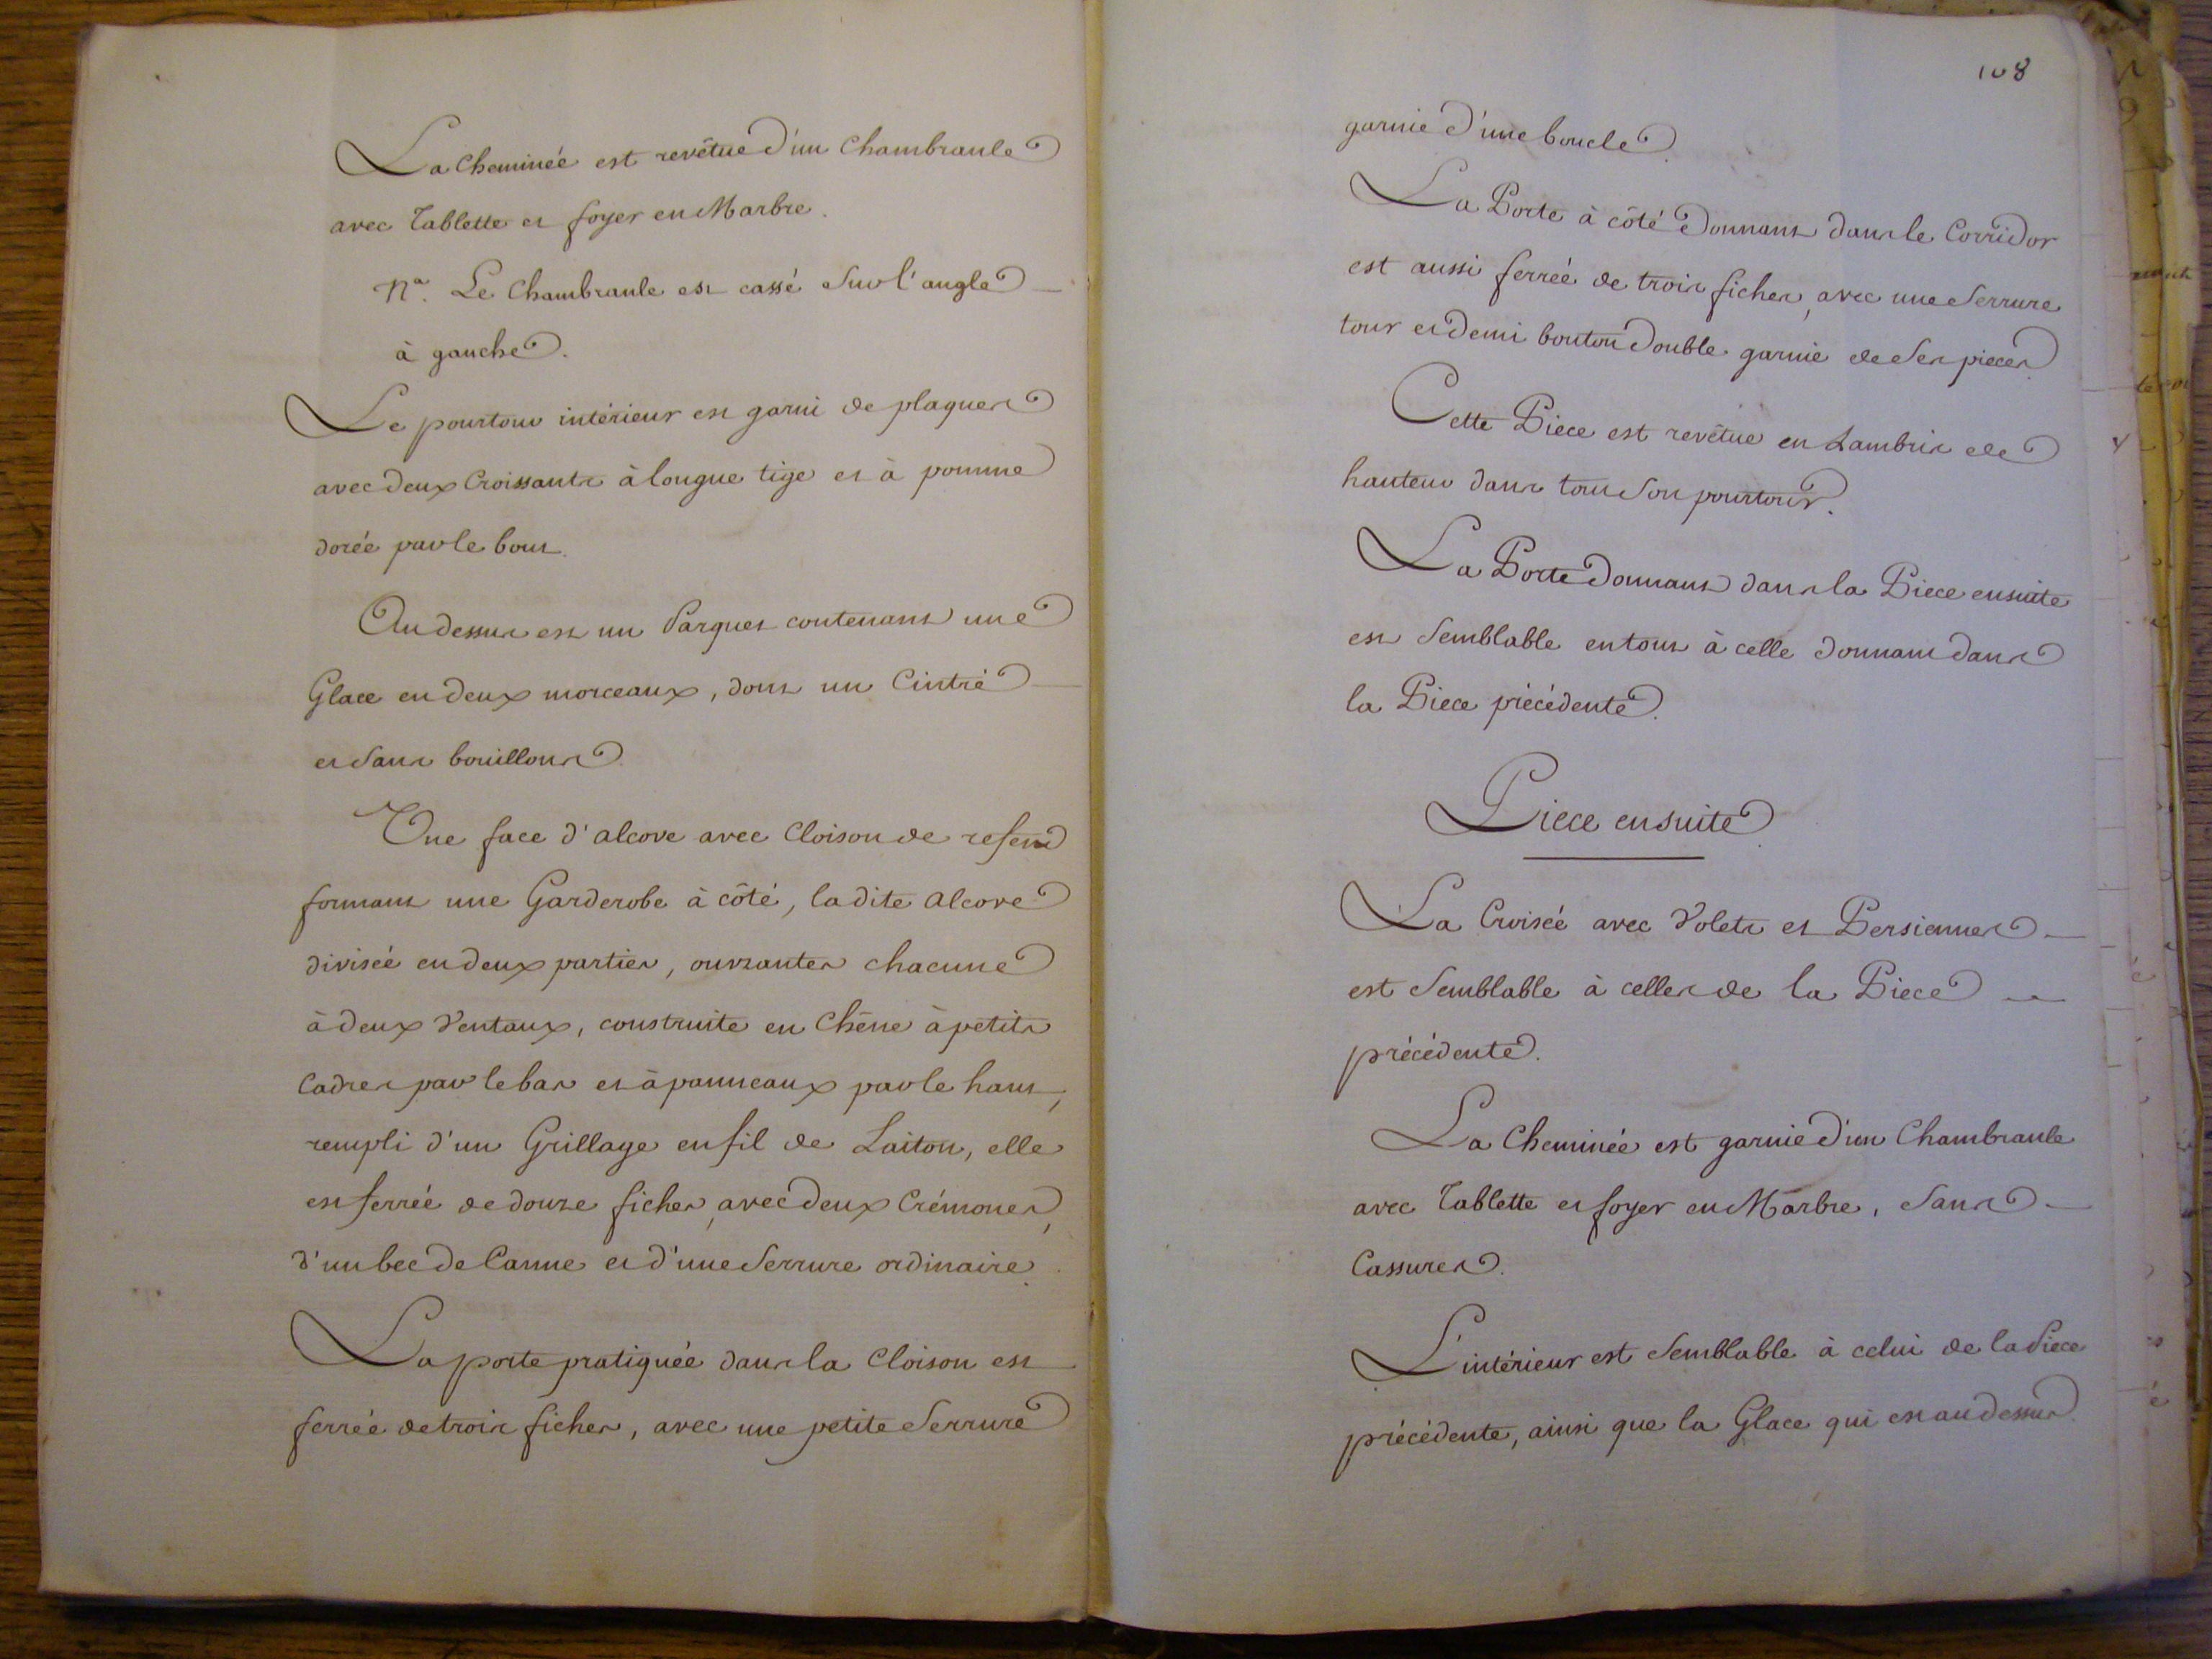 La Cheminée est revêtue d'un Chambranle
avec Tablette et foyer en Marbre.
Na. Le Chambranle est cassé sur l'angle
à gauche.
Le pourtour intérieur est garni de plaques
avec deux Croissants à longue tige et à pomme
dorée par le bout.
Au dessus est un Parquet contenant une
Glace en deux morceaux, dont un Cintré
et sans bouillons.
Une face d'alcove avec Cloison de refend
formant une Garderobe à côté, la dite alcove
divisée en deux parties, ouvrantes chacune
à deux Ventaux, construite en Chêne à petits
Cadres par le bas et à panneaux par le haut,
rempli d'un Grillage en fil de Laiton, elle
est ferrée de douze fiches, avec deux Crémones,
d'un bec de Canne et d'une Serrure ordinaire.
La porte pratiquée dans la Cloison est
ferrée de trois fiches, avec une petite Serrure
108
garnie d'une boucle.
La Porte à côté donnant dans le Corridor
est aussi ferrée de trois fiches, avec une Serrure
tour et demi bouton double garnie de ses pieces.
Cette Piece est revêtue en Lambris de
hauteur dans tout son pourtour.
La Porte donnant dans la Piece ensuite
est semblable en tout à celle donnant dans
la Piece précédente.
Piece ensuite
La Croisée avec Volets et Persiennes
est semblable à celles de la Piece
précédente.
La Cheminée est garnie d'un Chambranle
avec Tablette et foyer en Marbre, sans
Cassures.
L'intérieur est semblable à celui de la Piece
précédente, ainsi que la Glace qui est au dessus.